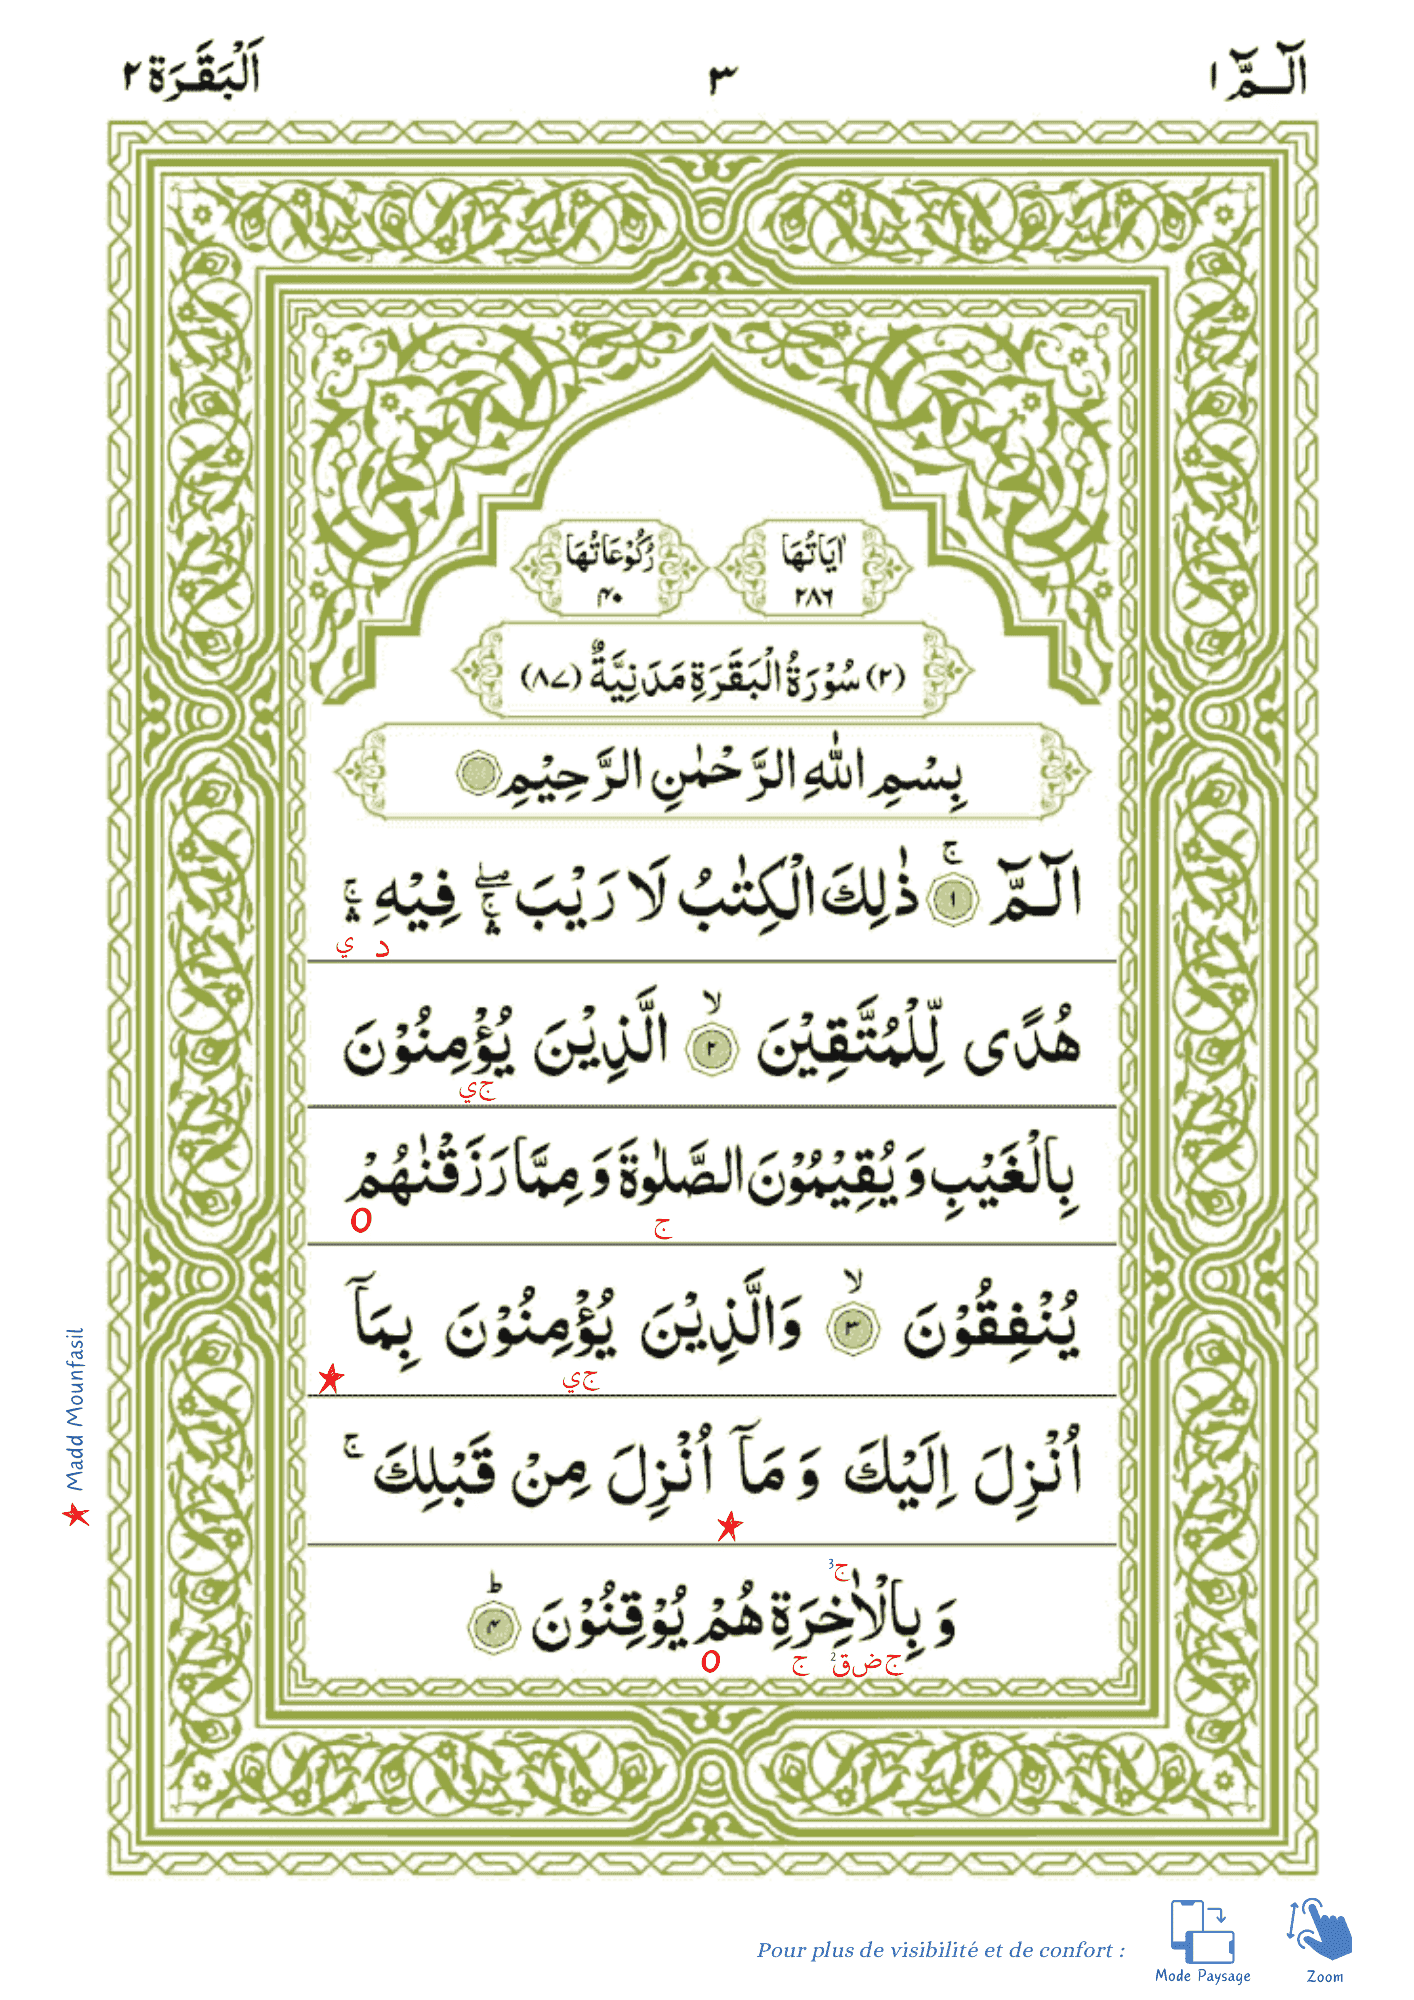 الٓـمّٓ ١
٣
اَلْبَقَرَة ٢
اٰيَاتُهَا
٢٨٦
رُكُوْعَاتُهَا
۴۰
(٢) سُوْرَةُ الْبَقَرَةِ مَدَنِيَّةٌ (٨٧)
بِسْمِ اللّٰهِ الرَّحْمٰنِ الرَّحِيْمِ
الٓـمّٓ ۚ ١ ذٰلِكَ الْكِتٰبُ لَا رَيْبَ ۖۛۚ فِيْهِ ۛۚ
د ي
هُدًى لِّلْمُتَّقِيْنَ ۙ ٢ الَّذِيْنَ يُؤْمِنُوْنَ
ج ي
بِالْغَيْبِ وَ يُقِيْمُوْنَ الصَّلٰوةَ وَ مِمَّا رَزَقْنٰهُمْ
ج O
يُنْفِقُوْنَ ۙ ٣ وَالَّذِيْنَ يُؤْمِنُوْنَ بِمَآ
ج ي
اُنْزِلَ اِلَيْكَ وَ مَآ اُنْزِلَ مِنْ قَبْلِكَ ۚ
ج3
وَ بِالْاٰخِرَةِ هُمْ يُوْقِنُوْنَ ؕ ۴
ج ض ق2 ج O
Madd Mounfasil
Pour plus de visibilité et de confort :
Mode Paysage
Zoom